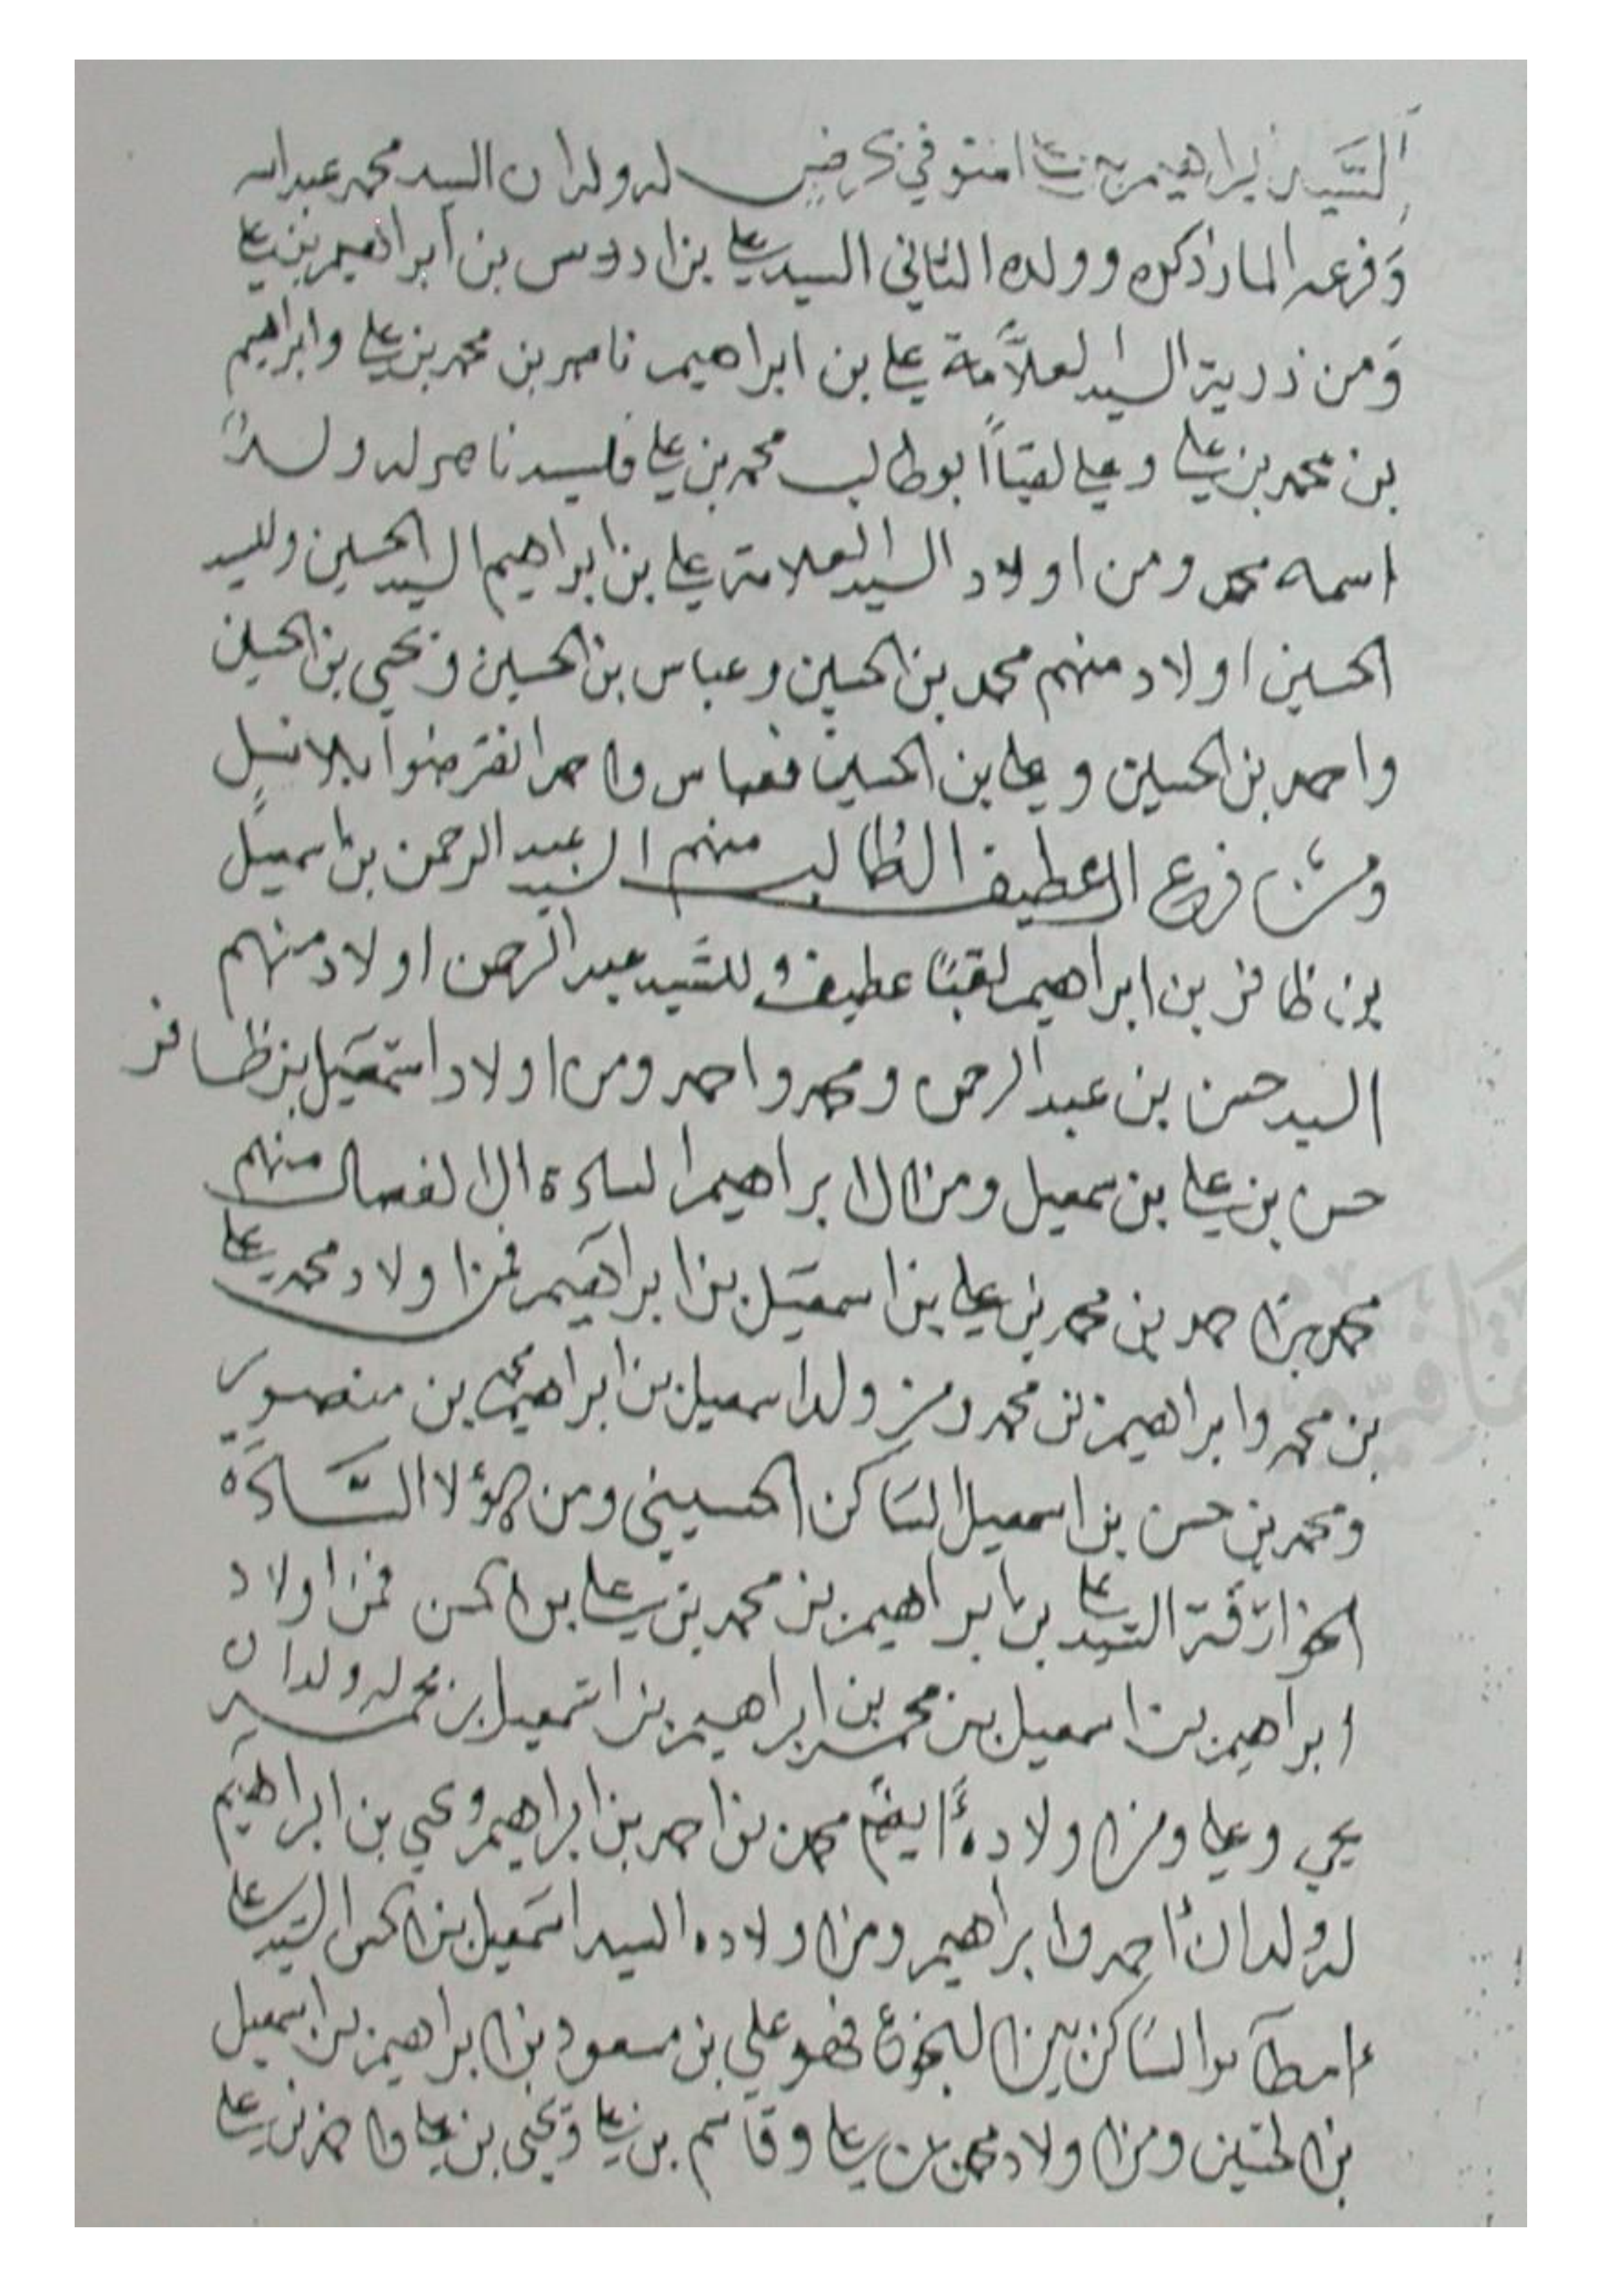 السيد ابراهيم بن علي المتوفي بحرض له ولدان السيد محمد عبد الله
وفرعه المار ذكره وولده الثاني السيد علي بن ادريس بن ابراهيم بن علي
ومن ذرية السيد العلامة علي بن ابراهيم ناصر بن محمد بن علي وابراهيم
بن محمد بن علي وعلي لقبًا ابو طالب محمد بن علي فلسيد ناصر له ولدٌ
اسمه محمد ومن اولاد السيد العلامة علي بن ابراهيم السيد الحسين وللسيد
الحسين اولاد منهم محمد بن الحسين وعباس بن الحسين ويحيى بن الحسين
واحمد بن الحسين وعلي بن الحسين فعباس واحمد انقرضوا بلا نسل
ومن فرع العطيف الطالب منهم السيد عبد الرحمن بن اسمعيل
بن ظافر بن ابراهيم لقبًا عطيف وللسيد عبد الرحمن اولاد منهم
السيد حسن بن عبد الرحمن ومحمد واحمد ومن اولاد اسمعيل بن ظافر
حسن بن علي بن سمعيل ومن ال ابراهيم السادة منهم
محمد بن احمد بن محمد بن علي بن اسمعيل بن ابراهيم فمن اولاد محمد علي
بن محمد وابراهيم بن محمد ومن ولد اسمعيل بن ابراهيم بن منصور
ومحمد بن حسن بن اسمعيل الساكن الحسيني ومن هؤلا السادة
السيد علي بن ابراهيم بن محمد بن علي بن الحسن فمن اولاد
ابراهيم بن اسمعيل بن محمد بن ابراهيم بن اسمعيل بن محمد له ولدان
يحي وعلي ومن اولاده أيضًا محمد بن احمد بن ابراهيم ويحي بن ابراهيم
له ولدان احمد وابراهيم ومن اولاده السيد اسمعيل بن الحسن السيد علي
الساكن بين فهو علي بن مسعود بن ابراهيم بن اسمعيل
بن الحسين ومن اولاد محمد بن علي وقاسم بن علي ويحيى بن علي